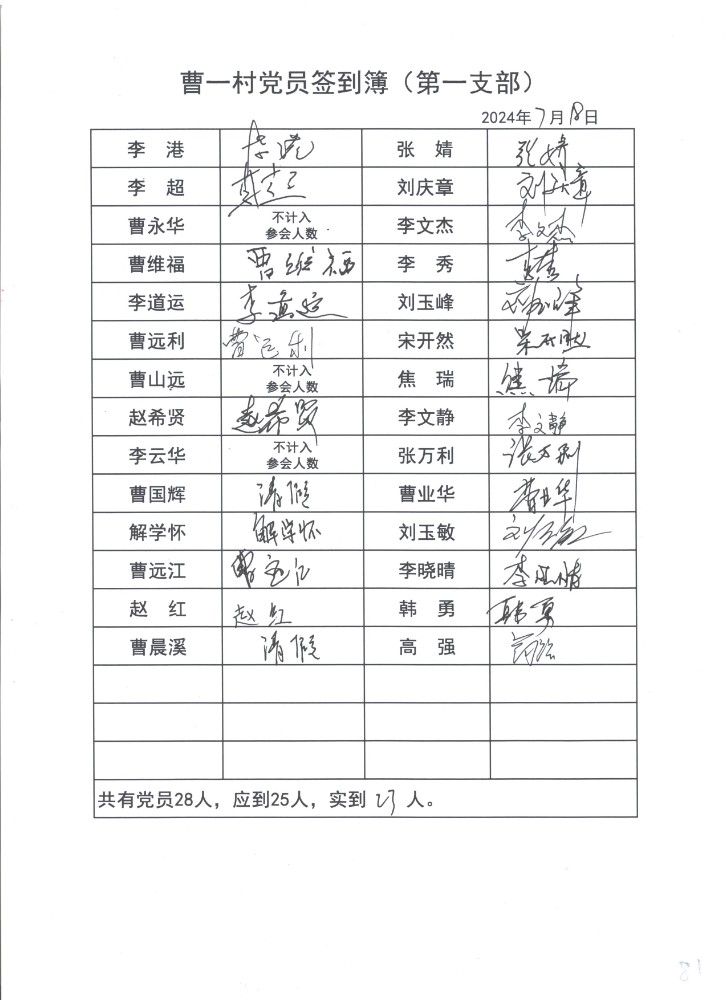 曹一村党员签到簿（第一支部）
2024年7月18日
李 港 李港 张 婧 张婧
李 超 李超 刘庆章 刘庆章
曹永华 不计入 参会人数 李文杰 李文杰
曹维福 曹维福 李 秀 李秀
李道运 李道运 刘玉峰 刘玉峰
曹远利 曹远利 宋开然 宋开然
曹山远 不计入 参会人数 焦 瑞 焦瑞
赵希贤 赵希贤 李文静 李文静
李云华 不计入 参会人数 张万利 张万利
曹国辉 请假 曹业华 曹业华
解学怀 解学怀 刘玉敏 刘玉敏
曹远江 曹远江 李晓晴 李晓晴
赵 红 赵红 韩 勇 韩勇
曹晨溪 请假 高 强 高强
共有党员28人，应到25人，实到23人。